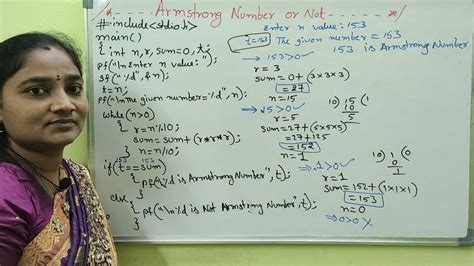 Armstrong Number or Not
#include<stdio.h>
main()
{ int n,r,sum=0,t;
pf("\nEnter n value:");
sf("%d",&n);
t=n;
pf("\nThe given number=%d",n);
while(n>0)
{ r=n%10;
sum=sum+(r*r*r);
n=n/10;
}
153 153
if(t==sum)
{ pf("%d is Armstrong Number",t);
}
else
{ pf("\n%d is Not Armstrong Number",t);
}
Enter n value:153
t=153
The given number=153
153 is Armstrong Number
→153>0✓
r=3
sum=0+(3×3×3)
=27
n=15
→15>0✓
r=5
sum=27+(5×5×5)
=27+125
=152
n=1
10) 15 (1
10
5
→1>0✓
r=1
sum=152+(1×1×1)
=153
n=0
⇒0>0 X
10) 1 (0
0
1